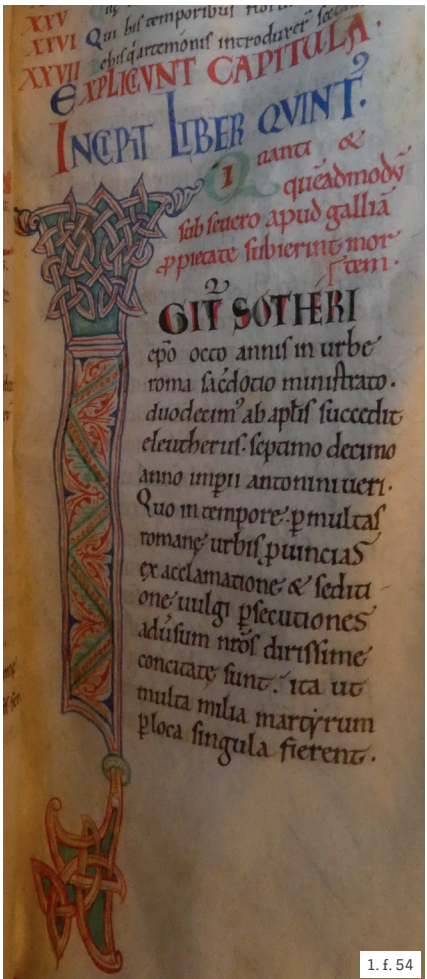 XXV
XXVI Qui his temporibus
XXVII
EXPLICIVNT CAPITULA.
INCIPIT LIBER QVINT⁹.
I Quanti &
quēadmodū
sub seuero apud galliā
ꝓ pietate subierint mor
tem.
GIT̄ SOTHERI
ep̄o octo annis in urbe
roma sac̄dotio ministrato.
duodecim⁹ ab apl̄is succedit
eleutherus. septimo decimo
anno imp̄ii antonini ueri.
Quo in tempore ꝑ multas
romanę urbis ꝓuincias
ex acclamatione & sediti
one uulgi ꝑsecutiones
adūsum nr̄os dirissime
concitatę sunt. ita ut
multa milia martyrum
ꝑ loca singula fierent.
1. f. 54